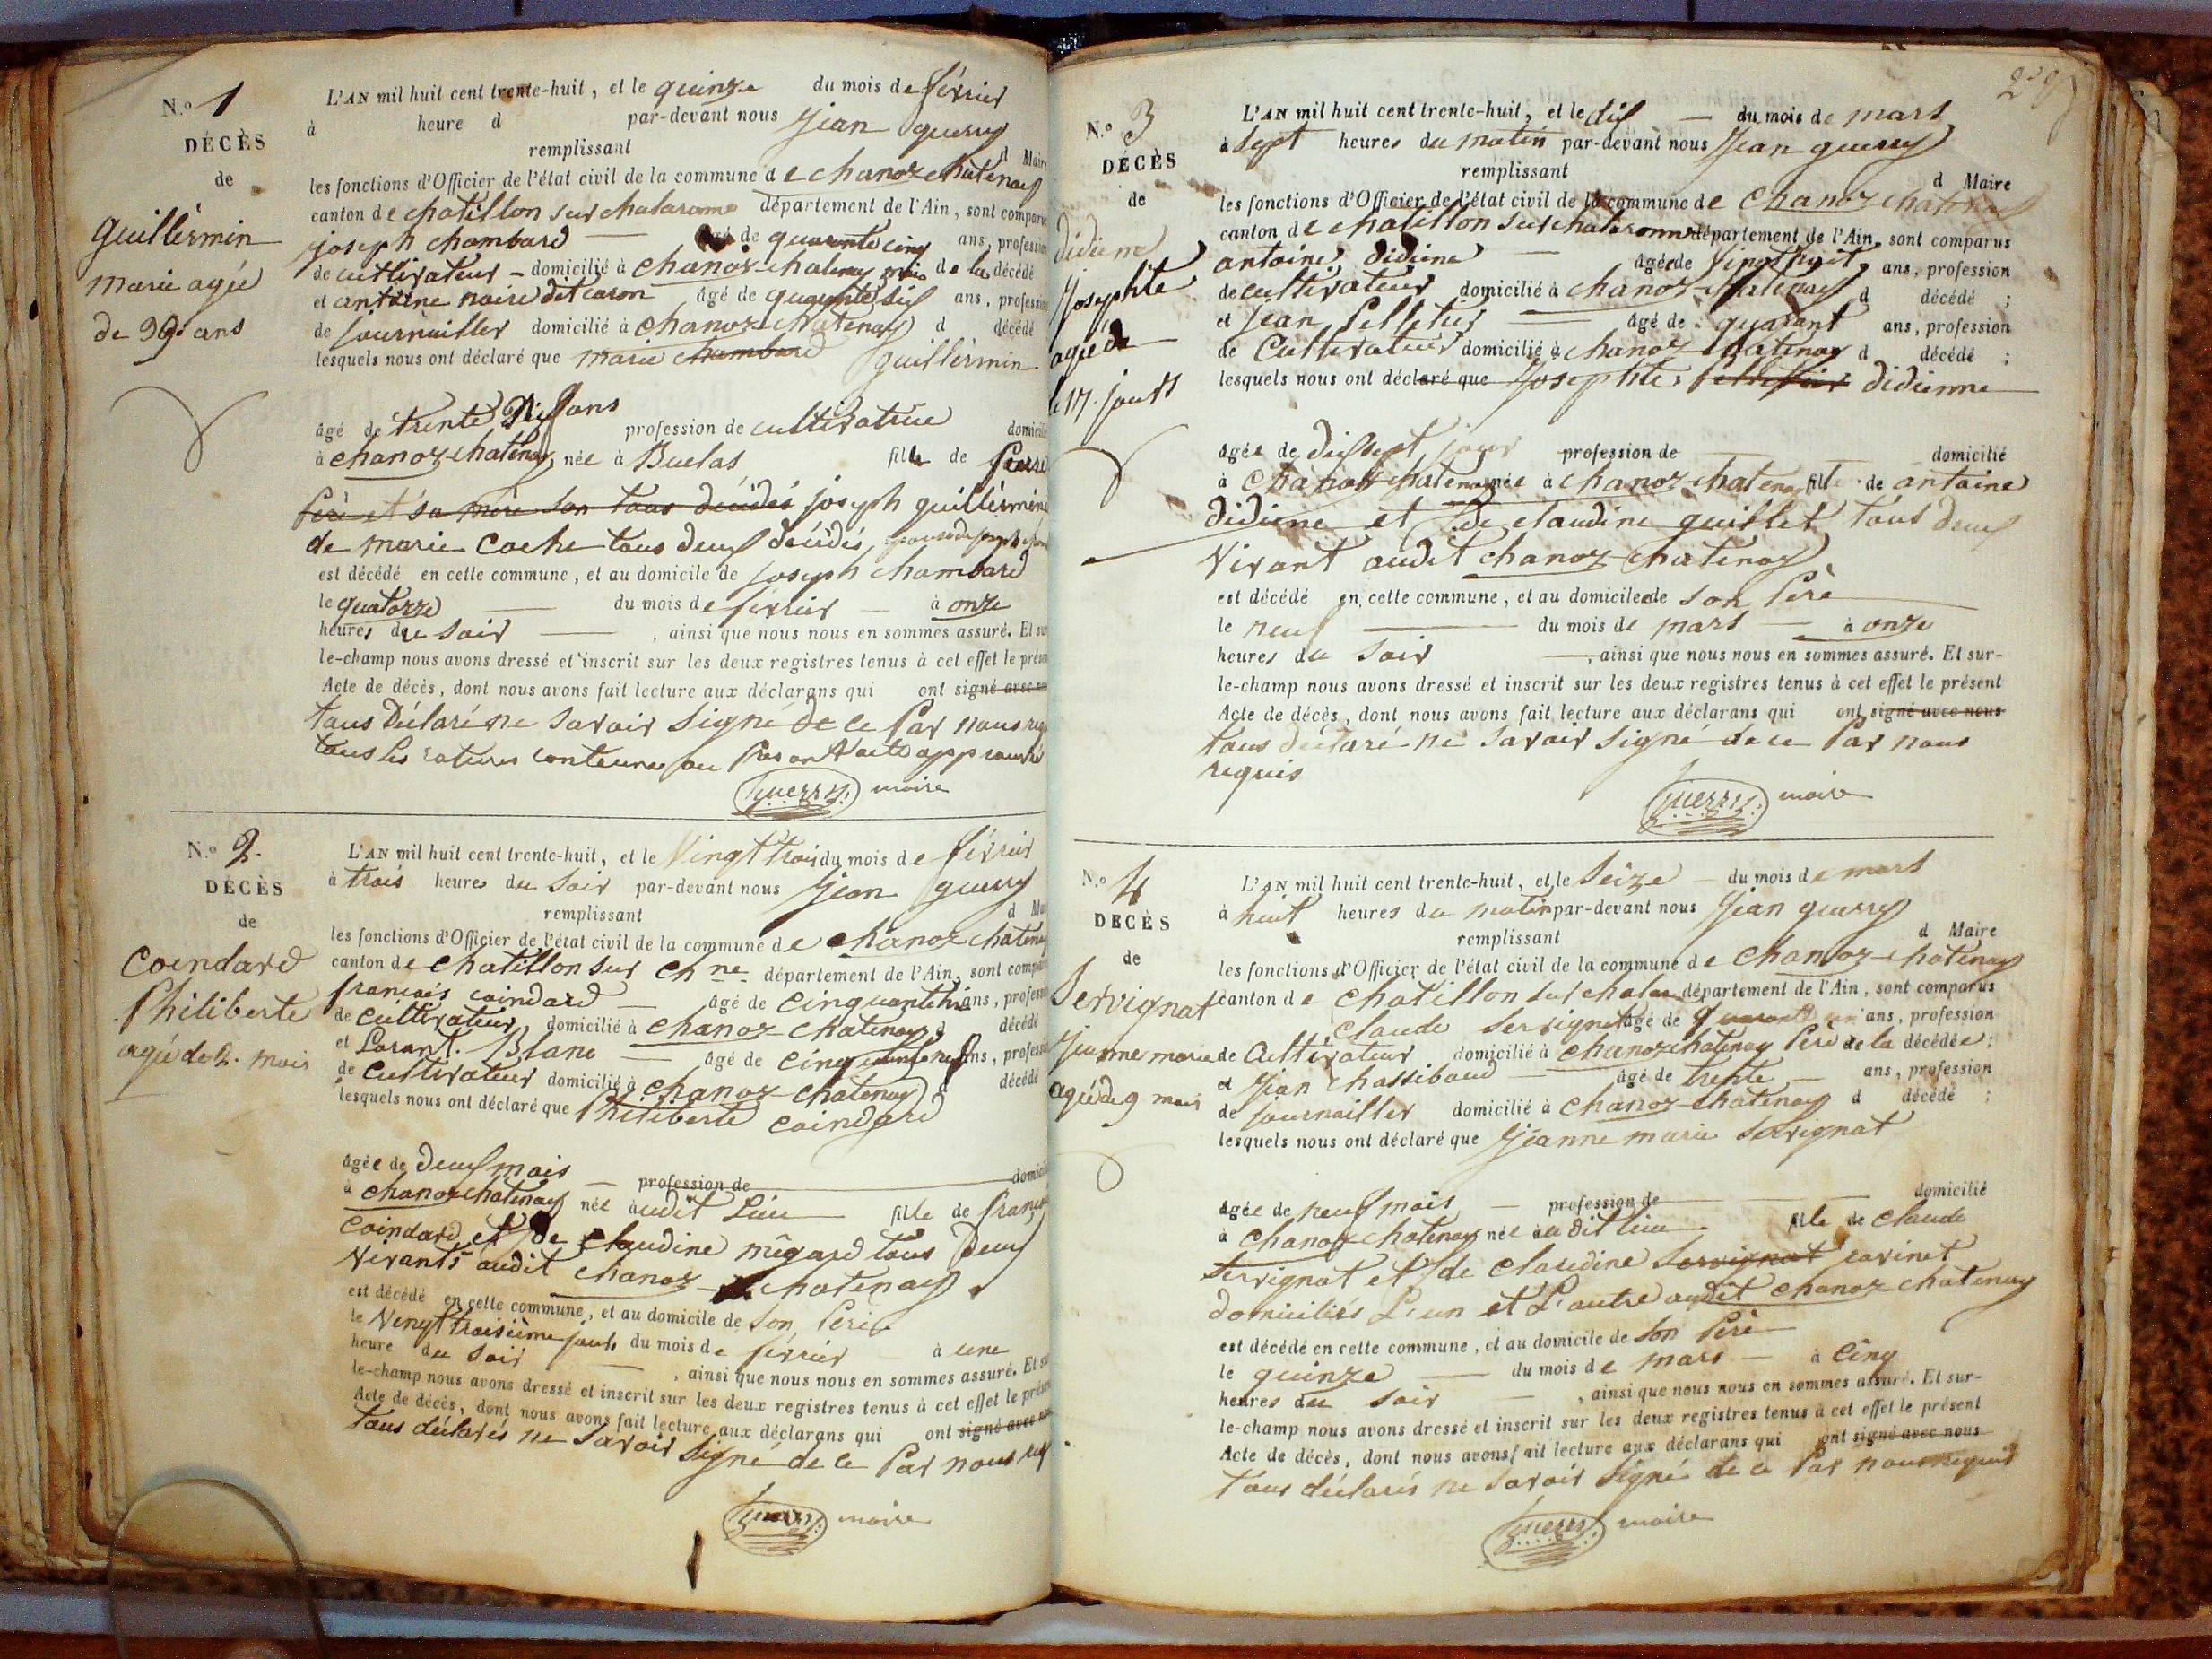 N.o 1
DÉCÈS
de
guillermin
marie agée
de 39 ans
L'AN mil huit cent trente-huit, et le quinze du mois de février
à heure d par-devant nous Jean guerry
remplissant d Maire
les fonctions d'Officier de l'état civil de la commune de chanoz chatenay
canton de chatillon sur chalaronne département de l'Ain, sont comparus
joseph chambard âgé de quarante cinq ans, profession
de cultivateur domicilié à chanoz-chatenay de la décédé
et antoine noire dit caron âgé de quarante six ans, profession
de journailler domicilié à chanoz-chatenay d décédé
lesquels nous ont déclaré que marie chambard guillermin
âgé de trente ans profession de cultivatrice domicilié
à chanoz chatenay née à Buelas fille de Pierre
père et sa mère son tous décédés joseph guillermin
de marie Coche tous deux décédés épouse de joseph
est décédé en cette commune, et au domicile de joseph chambard
le quatorze du mois de février à onze
heures du soir, ainsi que nous nous en sommes assuré. Et sur
le-champ nous avons dressé et inscrit sur les deux registres tenus à cet effet le présent
Acte de décès, dont nous avons fait lecture aux déclarans qui ont signé avec nous
tous déclaré ne savoir signé de ce par nous requis
tous les ratures contenues au présent acte approuvé
guerry maire
N.o 2.
DÉCÈS
de
Coindard
Philiberte
agée de 2. mois
L'AN mil huit cent trente-huit, et le vingt trois du mois de février
à trois heures du soir par-devant nous Jean guerry
remplissant d Maire
les fonctions d'Officier de l'état civil de la commune de chanoz chatenay
canton de chatillon sur ch ne département de l'Ain, sont comparus
francois coindard âgé de cinquante ans, profession
de cultivateur domicilié à chanoz chatenay d décédé
et Lorant. Blanc âgé de cinquante neuf ans, profession
de cultivateur domicilié à chanoz-chatenay d décédé
lesquels nous ont déclaré que Philiberte coindard
âgée de deux mois profession de domicilié
à chanoz chatenay née audit Lieu fille de françois
coindard et de claudine mégard tous deux
vivants audit chanoz chatenay
est décédé en cette commune, et au domicile de son Père
le vingt troisième jour du mois de février à une
heure du soir, ainsi que nous nous en sommes assuré. Et sur
le-champ nous avons dressé et inscrit sur les deux registres tenus à cet effet le présent
Acte de décès, dont nous avons fait lecture aux déclarans qui ont signé avec nous
tous déclarés ne savoir signé de ce par nous req
guerry maire
N.o 3
DÉCÈS
de
didiene
Josephte
agée de
17. jours
L'AN mil huit cent trente-huit, et le dix du mois de mars
à sept heures du matin par-devant nous Jean guerry
remplissant d Maire
les fonctions d'Officier de l'état civil de la commune de chanoz chatenay
canton de chatillon sur chalaronne département de l'Ain, sont comparus
antoine didiene âgé de vingt huit ans, profession
de cultivateur domicilié à chanoz-chatenay d décédé ;
et Jean Pelletier âgé de quarant ans, profession
de Cultivateur domicilié à chanoz chatenay d décédé ;
lesquels nous ont déclaré que Josephte Pelletier didienne
âgée de dixsept jour profession de domicilié
à chanoz-chatenay née à chanoz-chatenay fille de antoine
didiene et de claudine guillet tous deux
vivant audit chanoz-chatenay
est décédé en cette commune, et au domicile de son Père
le neuf du mois de mars à onze
heures du soir, ainsi que nous nous en sommes assuré. Et sur-
le-champ nous avons dressé et inscrit sur les deux registres tenus à cet effet le présent
Acte de décès, dont nous avons fait lecture aux déclarans qui ont signé avec nous
tous déclaré ne savoir signé de ce par nous
requis
guerry maire
N.o 4
DÉCÈS
de
Servignat
Jeanne marie
agée de 9 mois
L'AN mil huit cent trente-huit, et le seize du mois de mars
à huit heures du matin par-devant nous Jean guerry
remplissant d Maire
les fonctions d'Officier de l'état civil de la commune de chanoz-chatenay
canton de chatillon sur chalar département de l'Ain, sont comparus
claude servignat âgé de quarante un ans, profession
de Cultivateur domicilié à chanoz chatenay Père de la décédée ;
et Jean chassiboud âgé de trente ans, profession
de journailler domicilié à chanoz-chatenay d décédé ;
lesquels nous ont déclaré que Jeanne marie servignat
âgée de neuf mois profession de domicilié
à chanoz-chatenay née audit lieu fille de claude
servignat et de claudine servignat ravinet
domiciliés L'un et L'autre audit chanoz chatenay
est décédé en cette commune, et au domicile de son Père
le quinze du mois de mars à cinq
heures du soir, ainsi que nous nous en sommes assuré. Et sur-
le-champ nous avons dressé et inscrit sur les deux registres tenus à cet effet le présent
Acte de décès, dont nous avons fait lecture aux déclarans qui ont signé avec nous
tous déclarés ne savoir signé de ce par nous requis
guerry maire